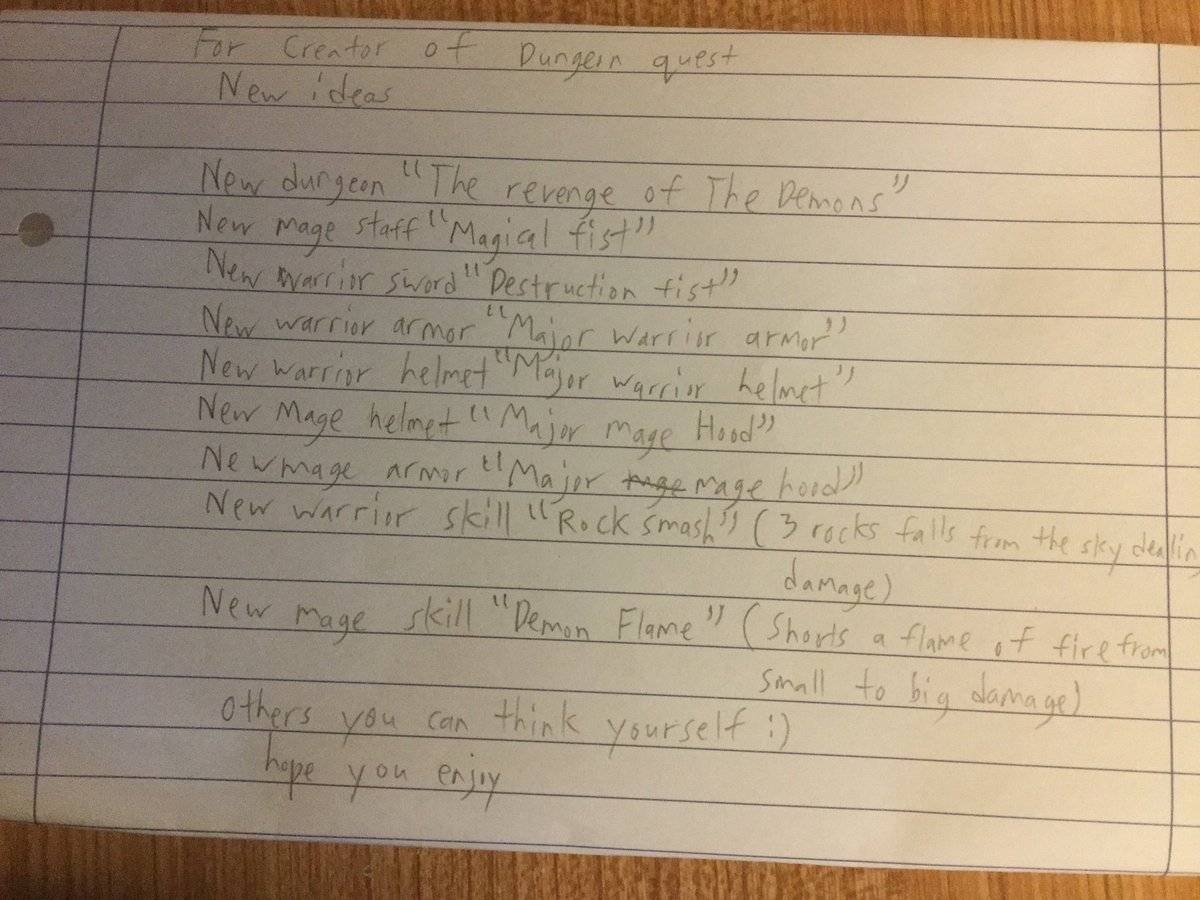 For Creator of Dungeon quest
New ideas
New dungeon "The revenge of The Demons"
New mage staff "Magical fist"
New warrior sword "Destruction fist"
New warrior armor "Major warrior armor"
New warrior helmet "Major warrior helmet"
New Mage helmet "Major mage Hood"
New mage armor "Major mage hood"
New warrior skill "Rock smash" (3 rocks falls from the sky dealin
damage)
New mage skill "Demon Flame" (Shoots a flame of fire from
small to big damage)
others you can think yourself :)
hope you enjoy